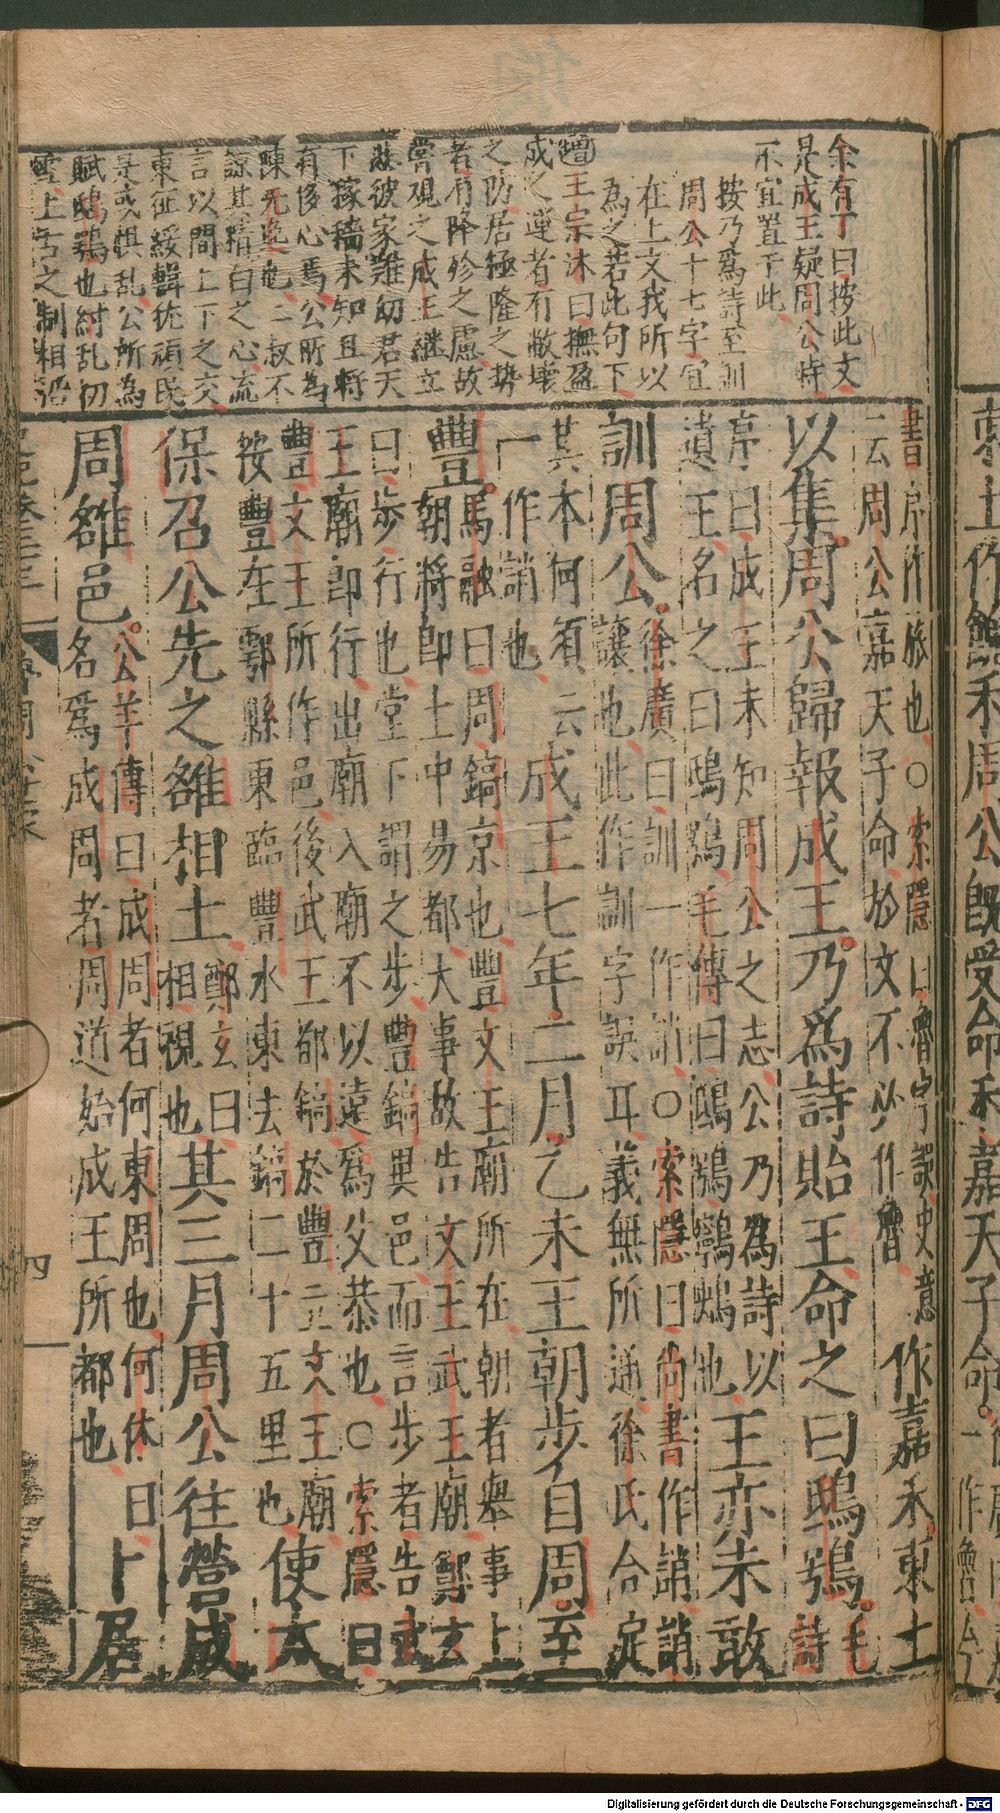 余有丁曰按此文
是成王疑周公時
不宜置于此
按乃爲詩至訓
周公十七字宜
在上文我所以
爲之若此句下
增王宗沐曰撫盈
成之運者有敝壞
之防居極隆之勢
者有降殄之慮故
嘗觀之成王継立
下稼穡未知且將
有侈心焉公所為
諒其精白之心流
言以間上下之交
東征綏輯抚頑民
是或惧乱公所為
賦鴟鴞也紂乱初
上古之制相沿
書序作旅也○索隱曰魯字誤史意
云周公嘉天子命於文不必作魯
作嘉禾東土
以集周公歸報成王乃爲詩貽王命之曰鴟鴞
毛詩
序曰成王未知周公之志公乃為詩以
遺王名之曰鴟鴞毛傳曰鴟鴞鸋鴂也
王亦未敢
訓周公
徐廣曰訓一作誚○索隱曰尚書作誚誚
讓也此作訓字誤耳義無所通徐氏合定
其本何須云
一作誚也
成王七年二月乙未王朝步自周至
豐
馬融曰周鎬京也豐文王廟所在朝者舉事上
朝將即土中易都大事故告文王武王廟鄭玄
曰步行也堂下謂之步豐鎬異邑而言步者告武
王廟即行出廟入廟不以遠爲父恭也○索隱曰
豐文王所作邑後武王都鎬於豐立文王廟
按豐在鄠縣東臨豐水東去鎬二十五里也
使太
保召公先之雒相土
鄭玄曰
相視也
其三月周公往營成
周雒邑
公羊傳曰成周者何東周也何休曰
名爲成周者周道始成王所都也
卜居
四
東土作餽禾周公既受命禾嘉天子命
Digitalisierung gefördert durch die Deutsche Forschungsgemeinschaft - DFG